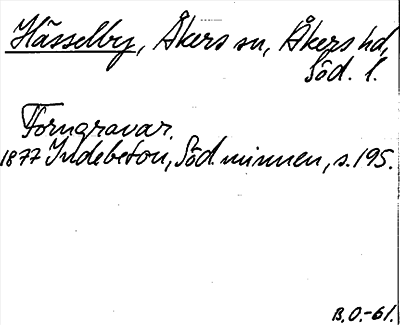 Hässelby, Åkers sn, Åkers hd,
Söd. l.
Forngravar.
1877 Indebetou, Söd. minnen, s. 195.
B. O. -61.